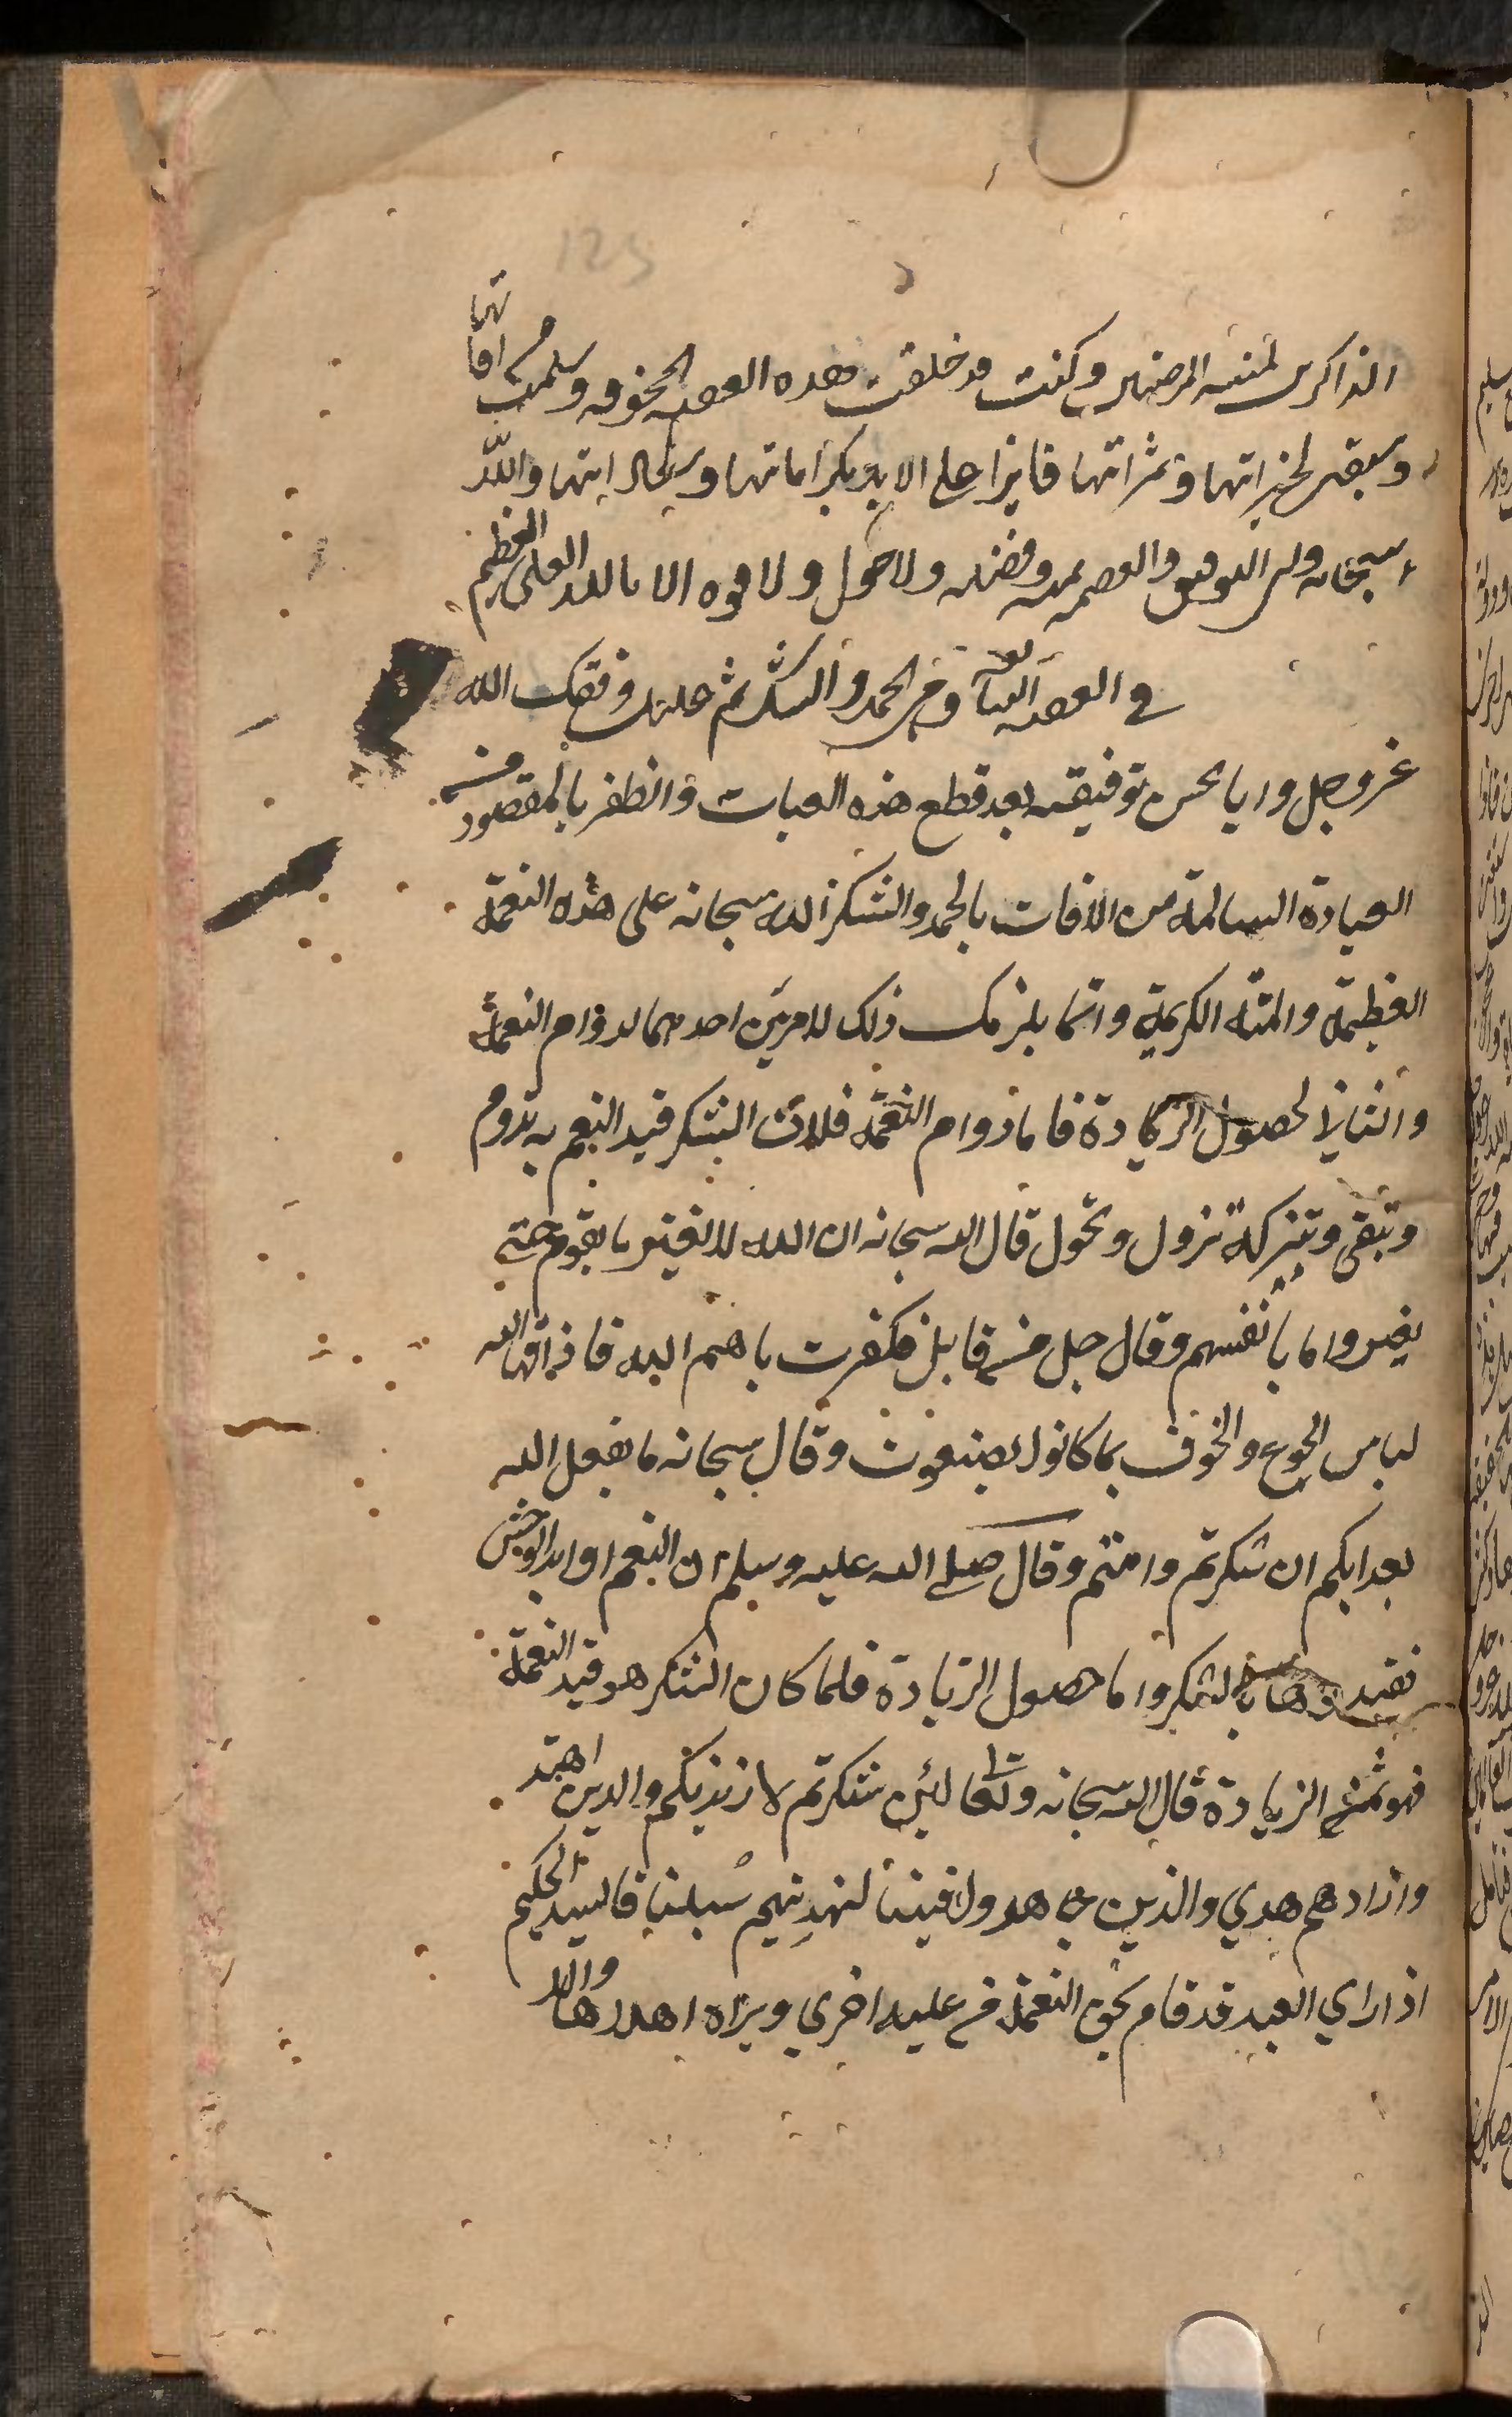 125
الذاكرين لمننه المرضيين وكنت قد خلفت هذه العقبة المخوفة وسلمت افاتها
وسبقت لخيراتها وثمراتها فايزا على الابد بكراماتها و اتها والله
سبحانه ولى التوفيق والعصمة بمنه وفضله ولا حول ولا قوة الا بالله العلى العظيم
في العقبة السابعة وهى الحمد والشكر ثم عليك وفقك الله
عز وجل وايا بحسن توفيقه بعد قطع هذه العبات والظفر بالمقصود من
العبادة السالمة من الافات بالحمد والشكر لله سبحانه على هذه النعمة
العظيمة والمنة الكريمة وانما يلزمك ذلك لامرين احدهما لدوام النعمة
والثاني لحصول الزيادة فاما دوام النعمة فلان الشكر قيد النعم به تدوم
وتبقى وتبركه تزول وتحول قال الله سبحانه ان الله لا يغير ما بقوم حتى
يغيروا ما بانفسهم وقال جل من قايل فكفرت باهم الله فاذاقها الله
لباس الجوع والخوف بما كانوا يصنعون وقال سبحانه ما يفعل الله
بعدابكم ان شكرتم وامنتم وقال صلى الله عليه وسلم ان النعم اوابد الوحش
فقيدوها بالشكر واما حصول الزيادة فلما كان الشكر هو قيد النعمة
فهو ثمن الزيادة قال الله سبحانه وتعالى لئن شكرتم لازيدنكم والدين اهتد
وازادهم هدي والذين جاهدوا فينا لنهدينهم سبلنا فالسيد الحكيم
اذا راي العبد قد قام بحق النعمة من عليه اخري ويراه اهلا لها والا